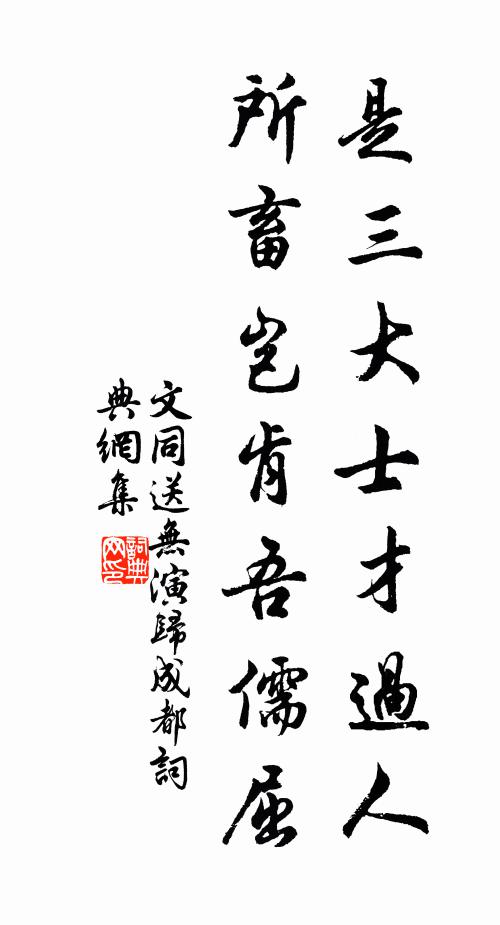 是三大士才過人
所畜豈肯吾儒屈
文同送無演歸成都詞
典網集
詞典
网印